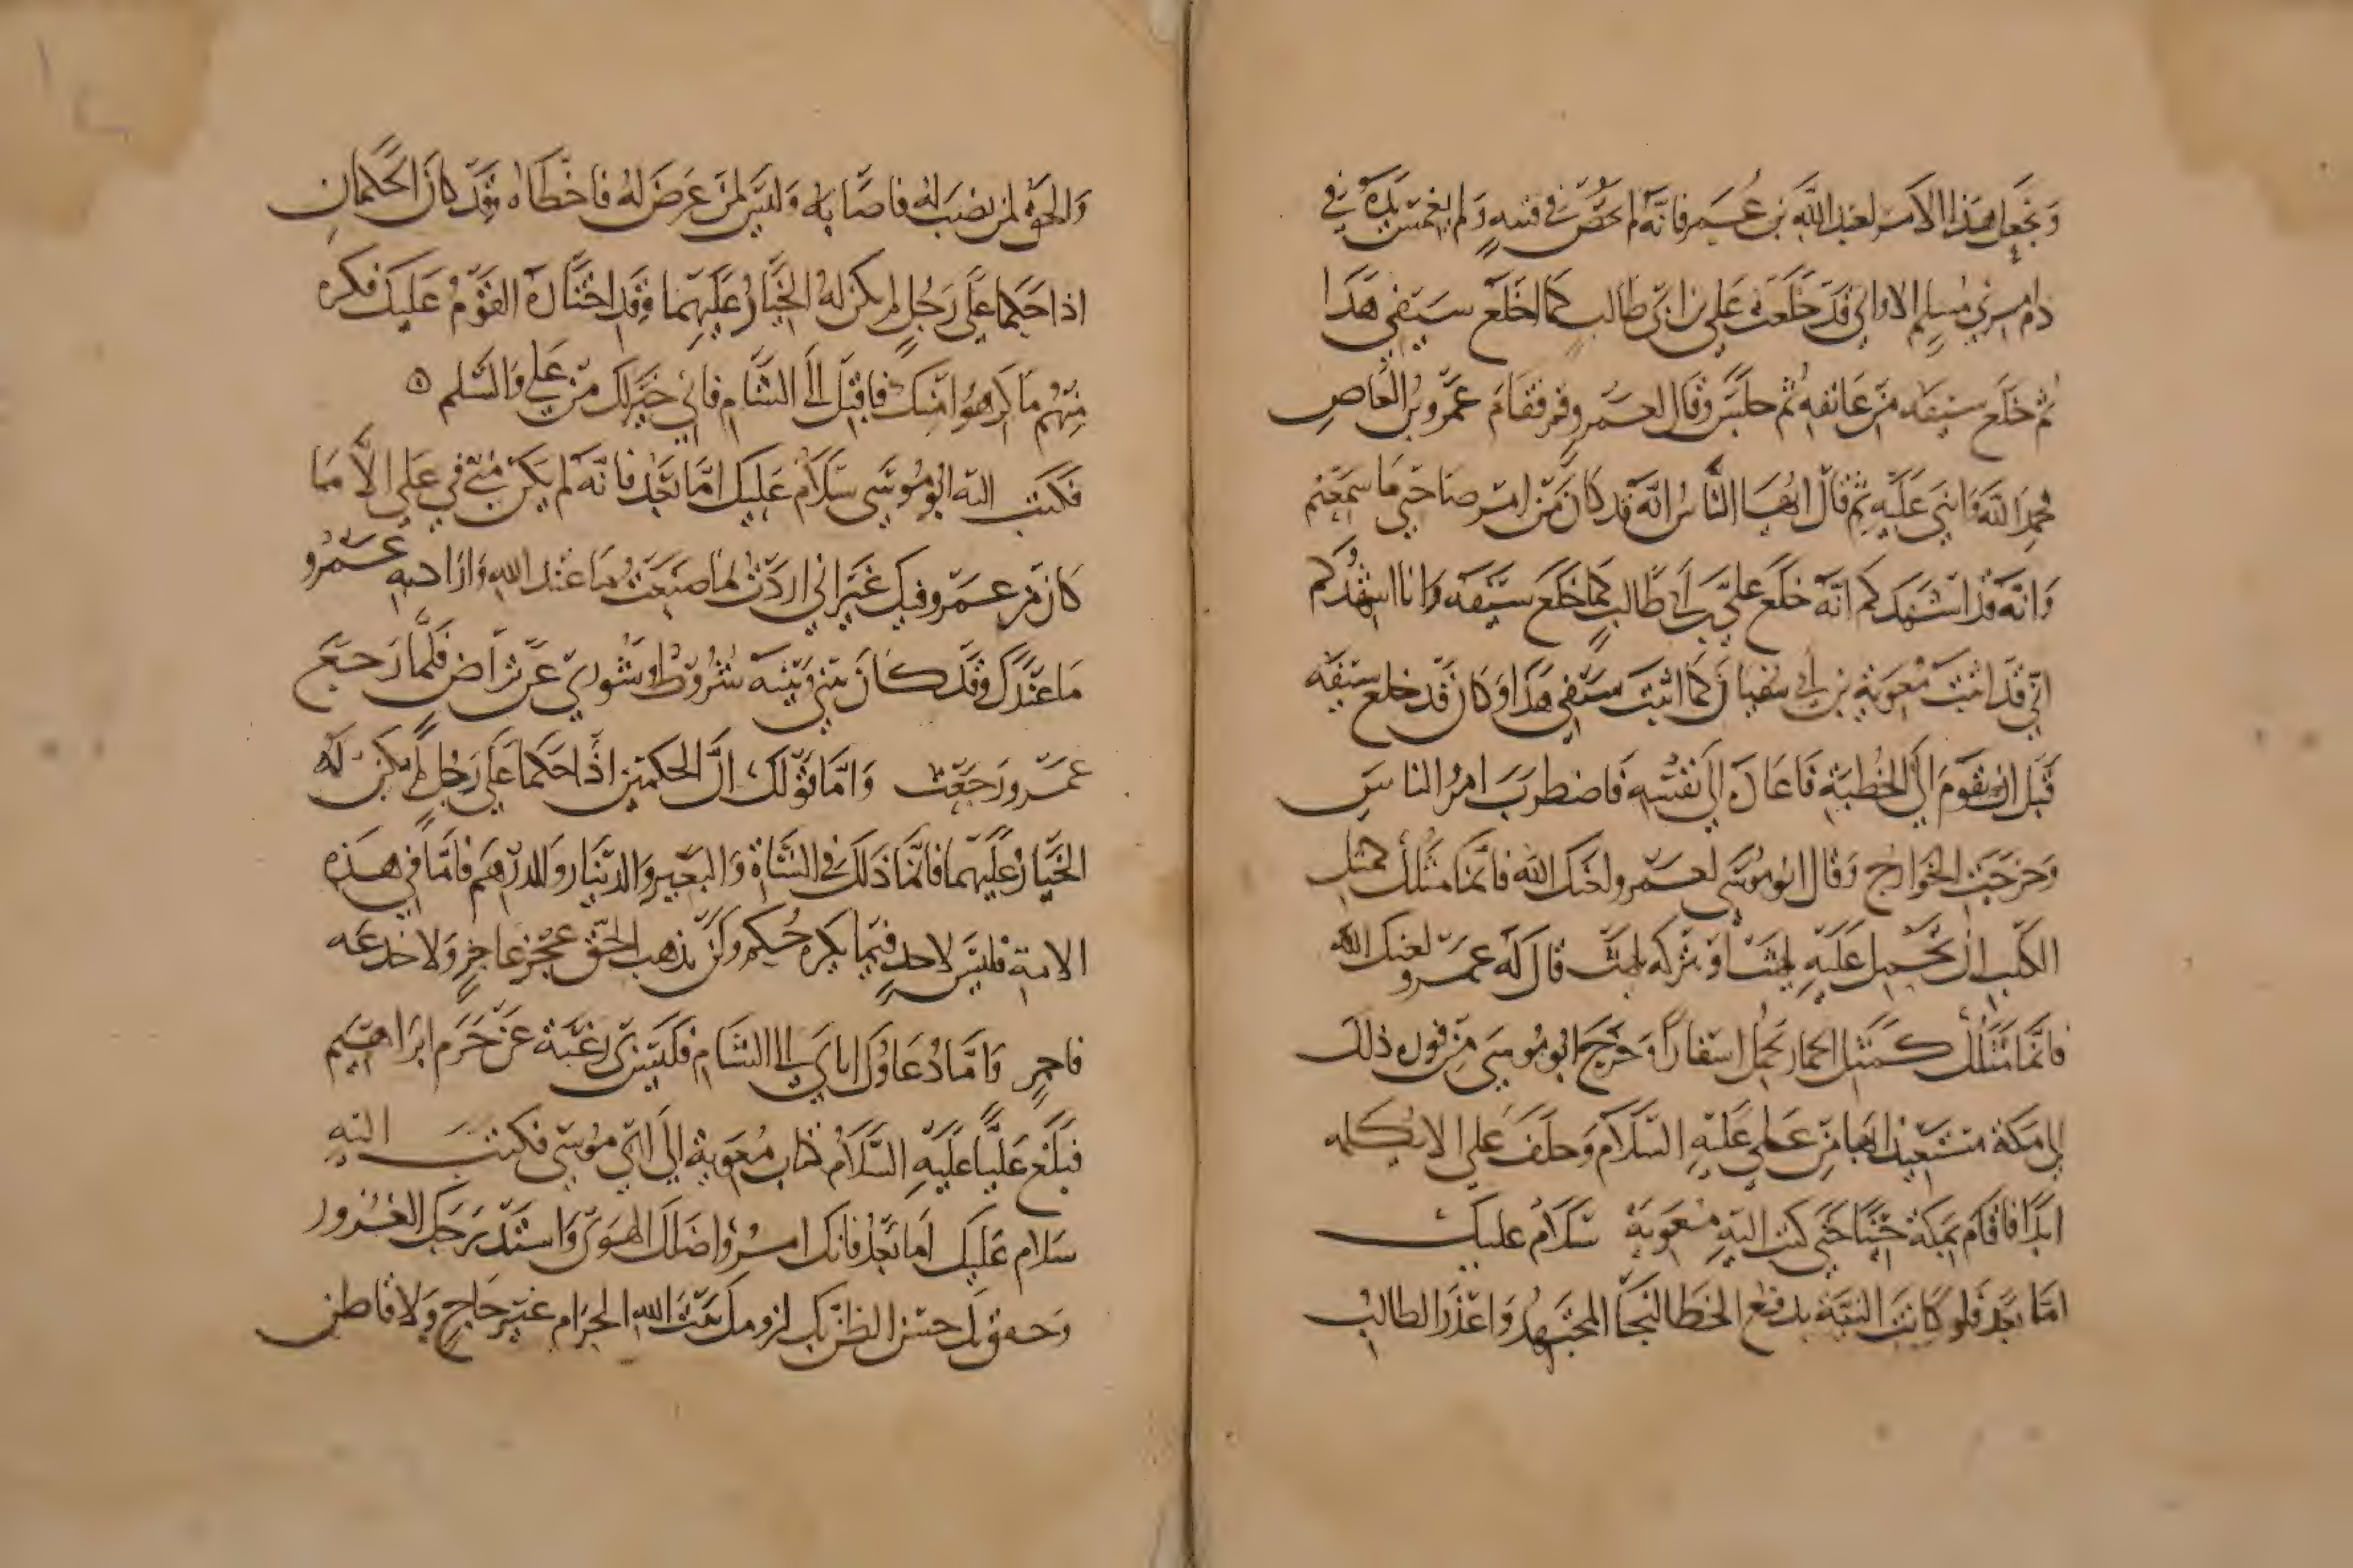 ونجعل هذا الامر لعبد الله بن عمر فانه لم يحضر في فتنه ولم يغمس يده في
دم امرئ مسلم الا واني قد خلعت علي بن ابي طالب كما اخلع سيفي هذا
ثم خلع سيفه من عاتقه ثم جلس وقال لعمرو قم فقام عمرو بن العاص
فحمد الله واثني عليه ثم قال ايها الناس انه قد كان من امر صاحبي ما سمعتم
وانه قد اشهدكم انه خلع علي بن ابي طالب كما خلع سيفه وانا اشهدكم
اني قد اثبت معوية بن ابي سفيان كما اثبت سيفي هذا وكان قد خلع سيفه
قبل ان يقوم الي الخطبة فاعاده الي نفسه فاضطرب امر الناس
وخرجت الخوارج وقال ابو موسى لعمرو لعنك الله فانما مثلك كمثل
الكلب ان تحمل عليه يلهث او تتركه يلهث قال له عمرو لعنك الله
فانما مثلك كمثل الحمار يحمل اسفارا وخرج ابو موسى من فوره ذلك
الي مكة مستعيذا بها من علي عليه السلام وحلف علي الا يكلمه
ابدا فاقام بمكة حينا حتي كتب اليه معوية سلام عليك
اما بعد فلو كانت النية يدفع الخطا لنجا المجتهد واعذر الطالب
والحق لمن نصب له فاصابه وليس لمن عرض له فاخطاه وقد كان الحكمان
اذا حكما علي رجل لم يكن له الخيار عليهما وقد اختاره القوم عليك فكره
منهم ما كرهوا منك فاقبل الي الشام فاني خير لك من علي والسلم ه
فكتب اليه ابو موسى سلام عليك اما بعد فانه لم يكن مني في علي الا ما
كان من عمرو فيك غير اني اردت بما صنعت ما عند الله واراد به عمرو
ما عندك وقد كان بيني وبينه شروط وشورى عن تراض فلما رجع
عمرو رجعت واما قولك ان الحكمين اذا حكما علي رجل لم يكن له
الخيار عليهما فانما ذلك في الشاة والبعير والدينار والدرهم فاما في هذه
الامة فليس لاحد فيما يكره حكم ولن يذهب الحق عجز عاجز ولا خدعه
فاجر واما دعاؤك اياي الي الشام فليس بي رغبة عن حرم ابراهيم
فبلغ عليا عليه السلام كتاب معوية الي ابي موسى فكتب اليه
سلام عليك اما بعد فانك امرؤ اضلك الهوى واستدرجك الغرور
وحقق بك حسن الظن بك لزومك بيت الله الحرام غير حاج ولا قاطن